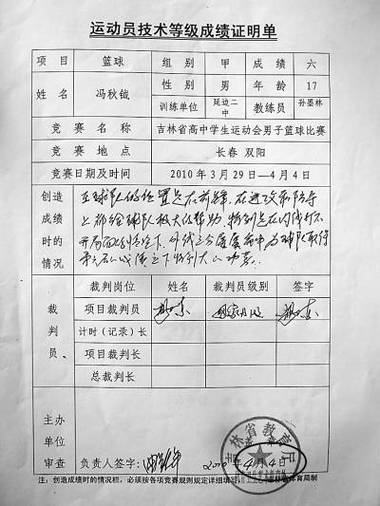 运动员技术等级成绩证明单
项目 篮球 组别 甲 成绩 六
姓名 冯秋钺 性别 男 年龄 17
训练单位 延边二中 教练员 孙墨林
竞赛名称 吉林省高中学生运动会男子篮球比赛
竞赛地点 长春 双阳
竞赛日期及时间 2010年3月29日—4月4日
创造成绩时的情况
在球队的位置是在前锋,在进攻和防守
上都给球队极大的帮助,特别是在内线打不
开局面的情况下,外线三分屡屡命中,为球队取得
第六名的成绩立下特别大的功劳。
裁判员、
裁判岗位 姓名 裁判员级别 签字
项目裁判员 国家
计时(记录)长
项目裁判长
总裁判长
主办单位审查
负责人签字: 2010年4月4日
吉林省教育厅
注:创造成绩时的情况栏,必须按各项竞赛规则规定详细填写
体育局制